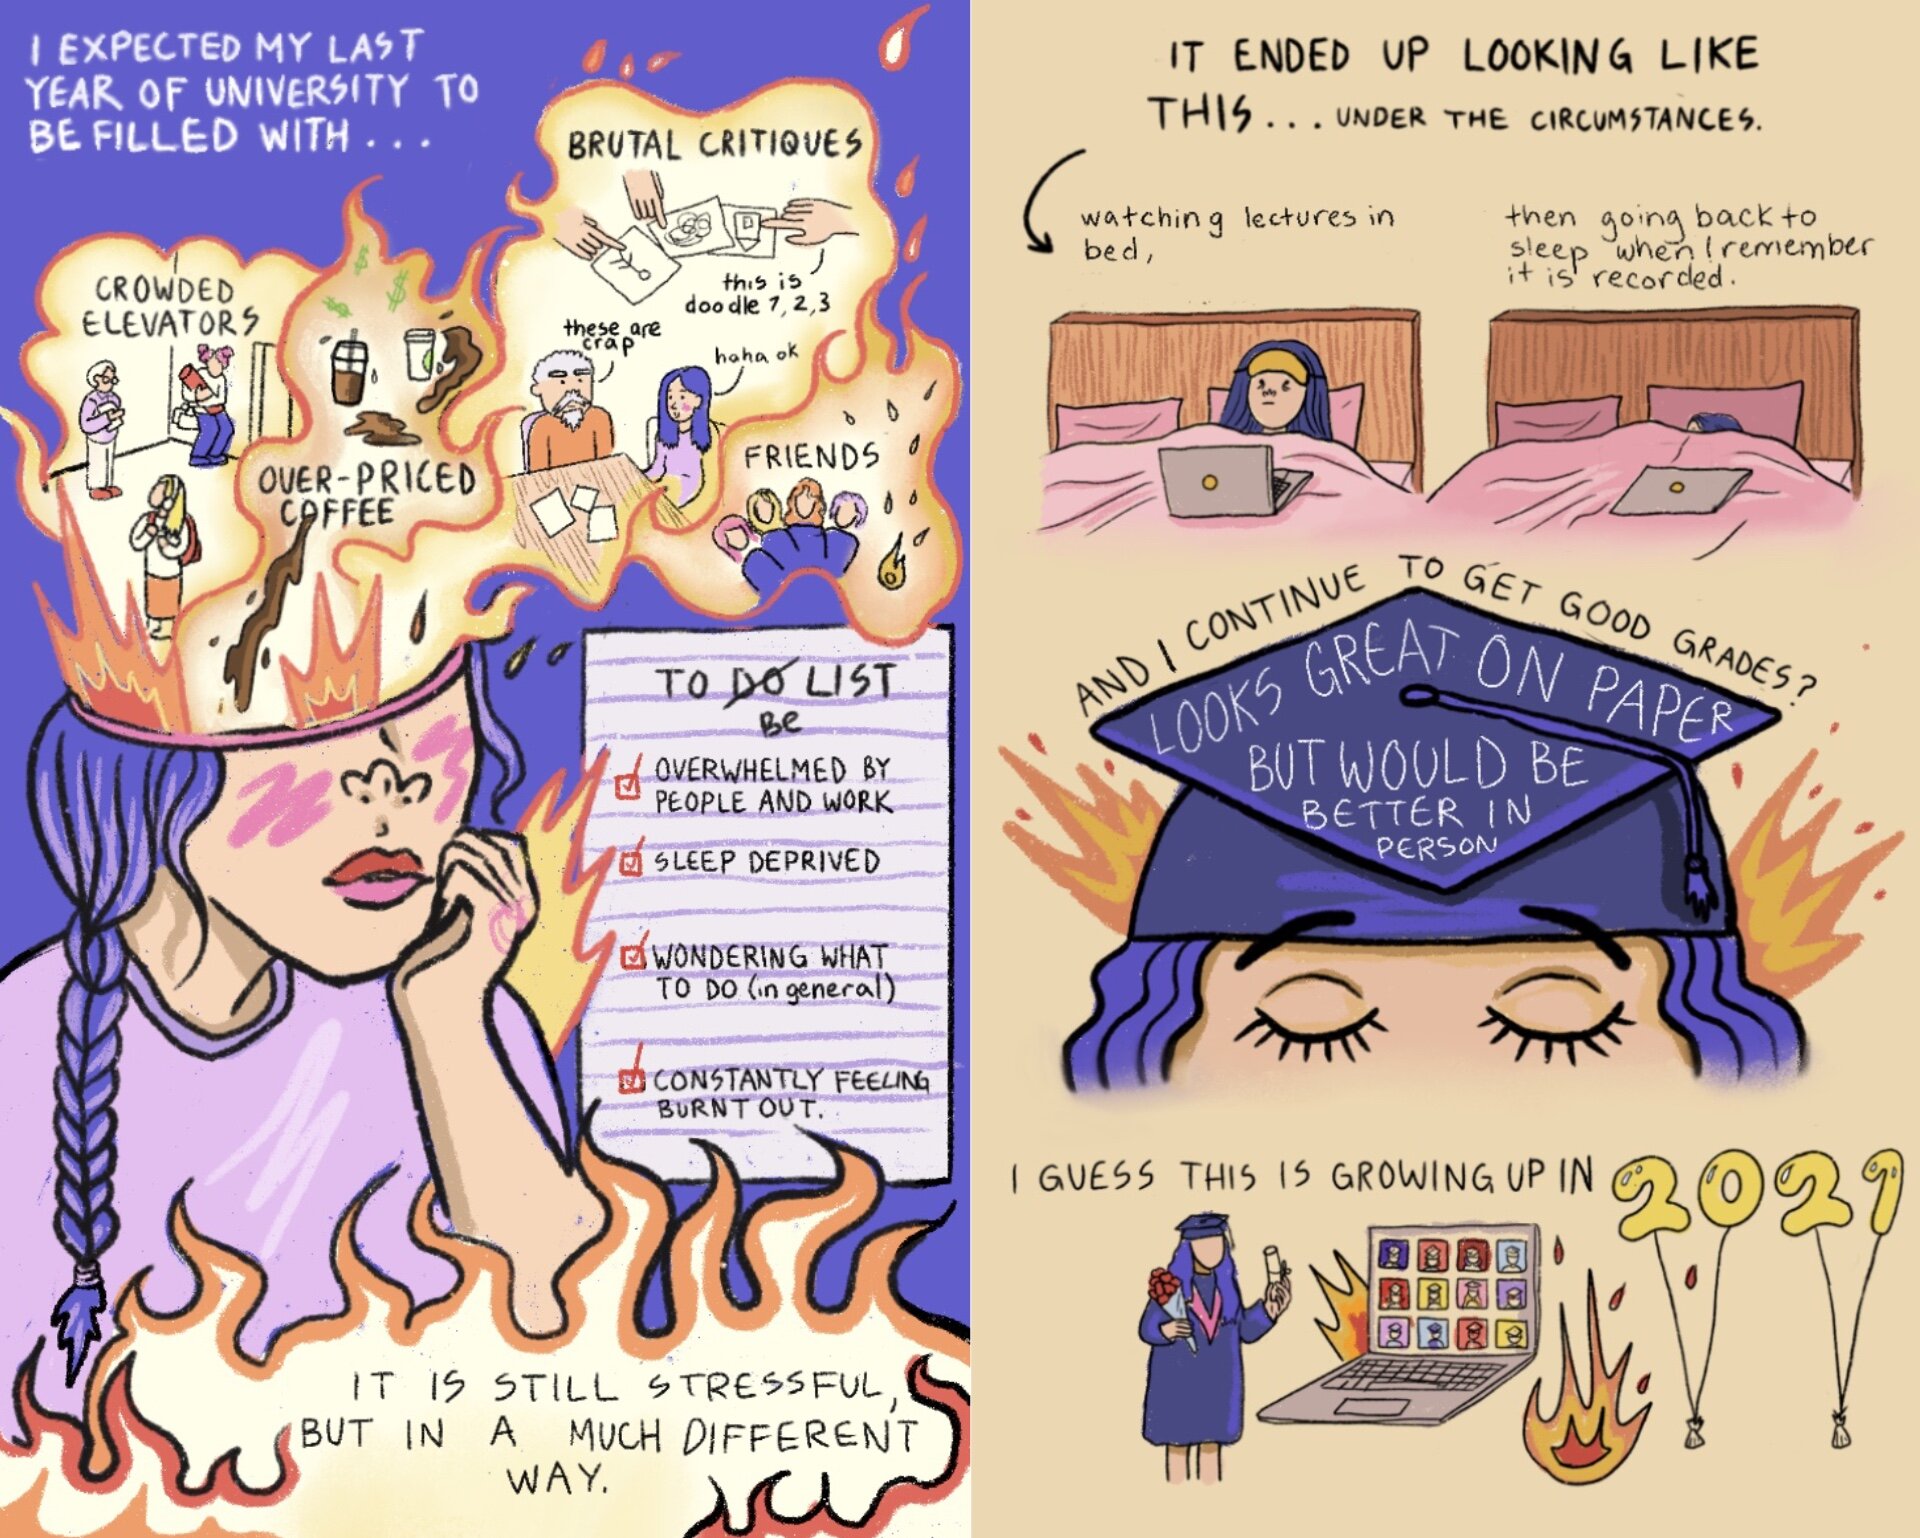 I EXPECTED MY LAST
YEAR OF UNIVERSITY TO
BE FILLED WITH...
BRUTAL CRITIQUES
this is
doodle 1, 2, 3
these are
crap
haha ok
CROWDED
ELEVATORS
OVER-PRICED
COFFEE
FRIENDS
TO DO LIST
BE
OVERWHELMED BY
PEOPLE AND WORK
SLEEP DEPRIVED
WONDERING WHAT
TO DO (in general)
CONSTANTLY FEELING
BURNT OUT.
IT IS STILL STRESSFUL,
BUT IN A MUCH DIFFERENT
WAY.
IT ENDED UP LOOKING LIKE
THIS... UNDER THE CIRCUMSTANCES.
watching lectures in
bed,
then going back to
sleep when I remember
it is recorded.
AND I CONTINUE TO GET GOOD GRADES?
LOOKS GREAT ON PAPER
BUT WOULD BE
BETTER IN
PERSON
I GUESS THIS IS GROWING UP IN 2021